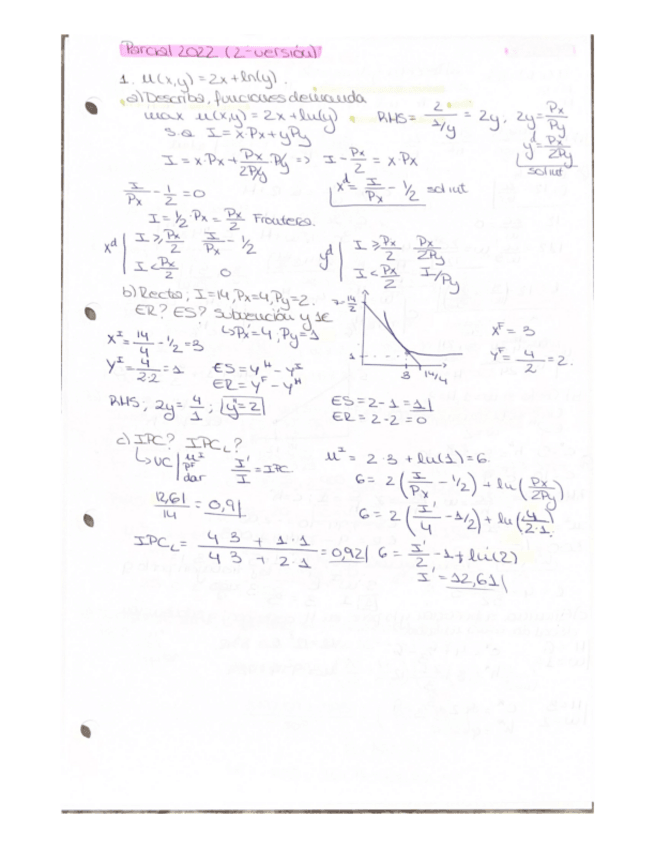 Parcial 2022 (2-versión)
1. u(x,y) = 2x + ln(y).
a) Describa, funciones demanda
max u(x,y) = 2x + ln(y)
s.a I = x·Px + yPy
RMS = 2 / 1/y = 2y, 2y = Px/Py
y^d = Px/2Py
sol int
I = x·Px + Px/2Py · Py => I - Px/2 = x·Px
x^d = I/Px - 1/2 sol int
I/Px - 1/2 = 0
I = 1/2·Px = Px/2 Frontera.
x^d | I ≥ Px/2 I/Px - 1/2
I < Px/2 0
y^d | I ≥ Px/2 Px/2Py
I < Px/2 I/Py
b) Recta, I=14, Px=4, Py=2.
ER? ES? Subvención y 1€
↳ Px=4, Py=1
x^I = 14/4 - 1/2 = 3
y^I = 4/2·2 = 1
ES = y^H - y^I
ER = y^F - y^H
RMS, 2y = 4/1; y=2
14/2
1
3 14/4
x^F = 3
y^F = 4/2 = 2.
ES = 2-1 = 1
ER = 2-2 = 0
c) IPC? IPC_L?
↳ UC | u^I
P^F
dar
I'/I = IPC
12,61/14 = 0,9
IPC_L = 4·3 + 1·1 / 4·3 + 2·1 = 0,92
u^I = 2·3 + ln(1) = 6.
6 = 2(I/Px - 1/2) + ln(Px/2Py)
6 = 2(I'/4 - 1/2) + ln(4/2·1)
6 = I'/2 - 1 + ln(2)
I' = 12,61